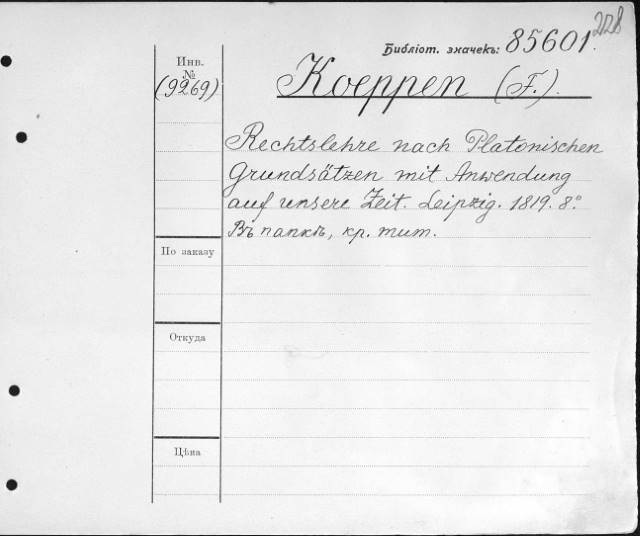 228
Библіот. значекъ: 85601.
Инв.
№
(9269)
Koeppen (F.).
Rechtslehre nach Platonischen
Grundsätzen mit Anwendung
auf unsere Zeit. Leipzig. 1819. 8°
Въ папкѣ, кр. тит.
По заказу
Откуда
Цѣна